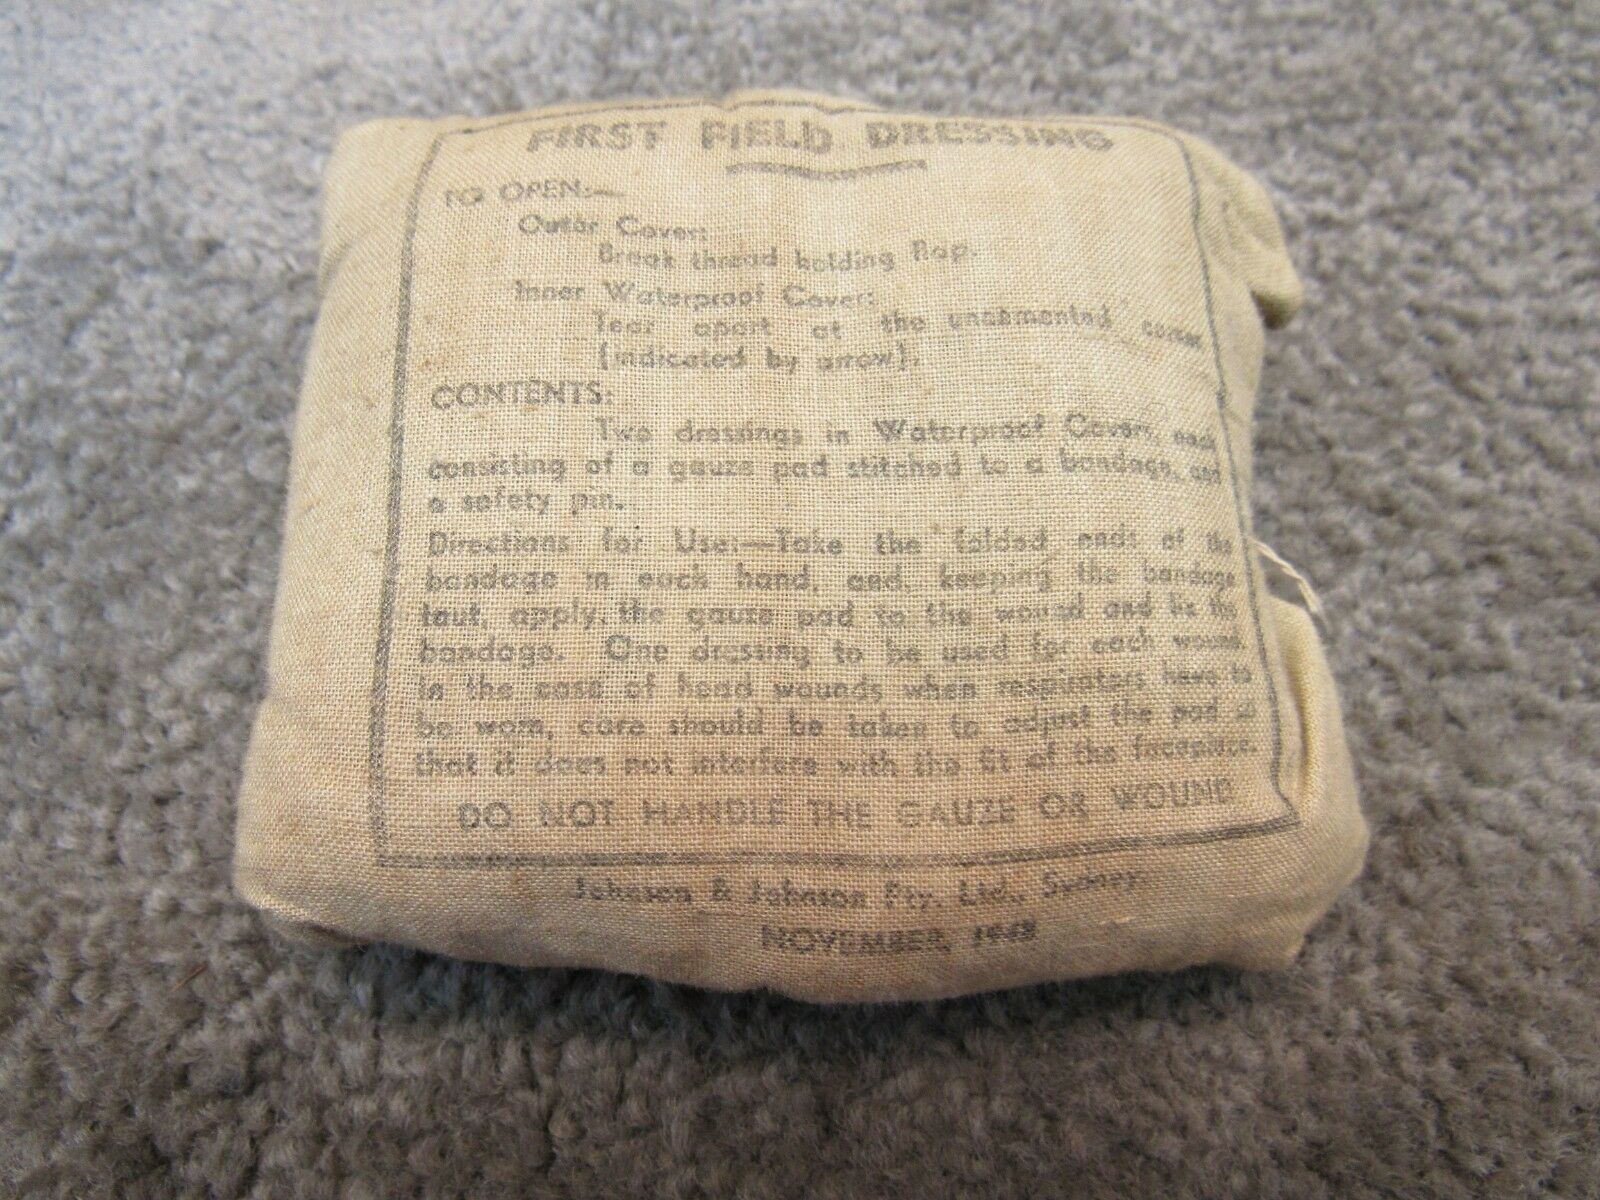 FIRST FIELD DRESSING
TO OPEN:—
Outer Cover:
Break thread holding flap.
Inner Waterproof Cover:
Tear apart at the uncemented corner
(indicated by arrow).
CONTENTS:
Two dressings in Waterproof Covers, each
consisting of a gauze pad stitched to a bandage, and
a safety pin.
Directions for Use:—Take the folded ends of the
bandage in each hand, and, keeping the bandage
taut, apply the gauze pad to the wound and tie the
bandage. One dressing to be used for each wound.
In the case of head wounds when respirators have to
be worn, care should be taken to adjust the pad so
that it does not interfere with the fit of the facepiece.
DO NOT HANDLE THE GAUZE OR WOUND
Johnson & Johnson Pty. Ltd., Sydney.
NOVEMBER,